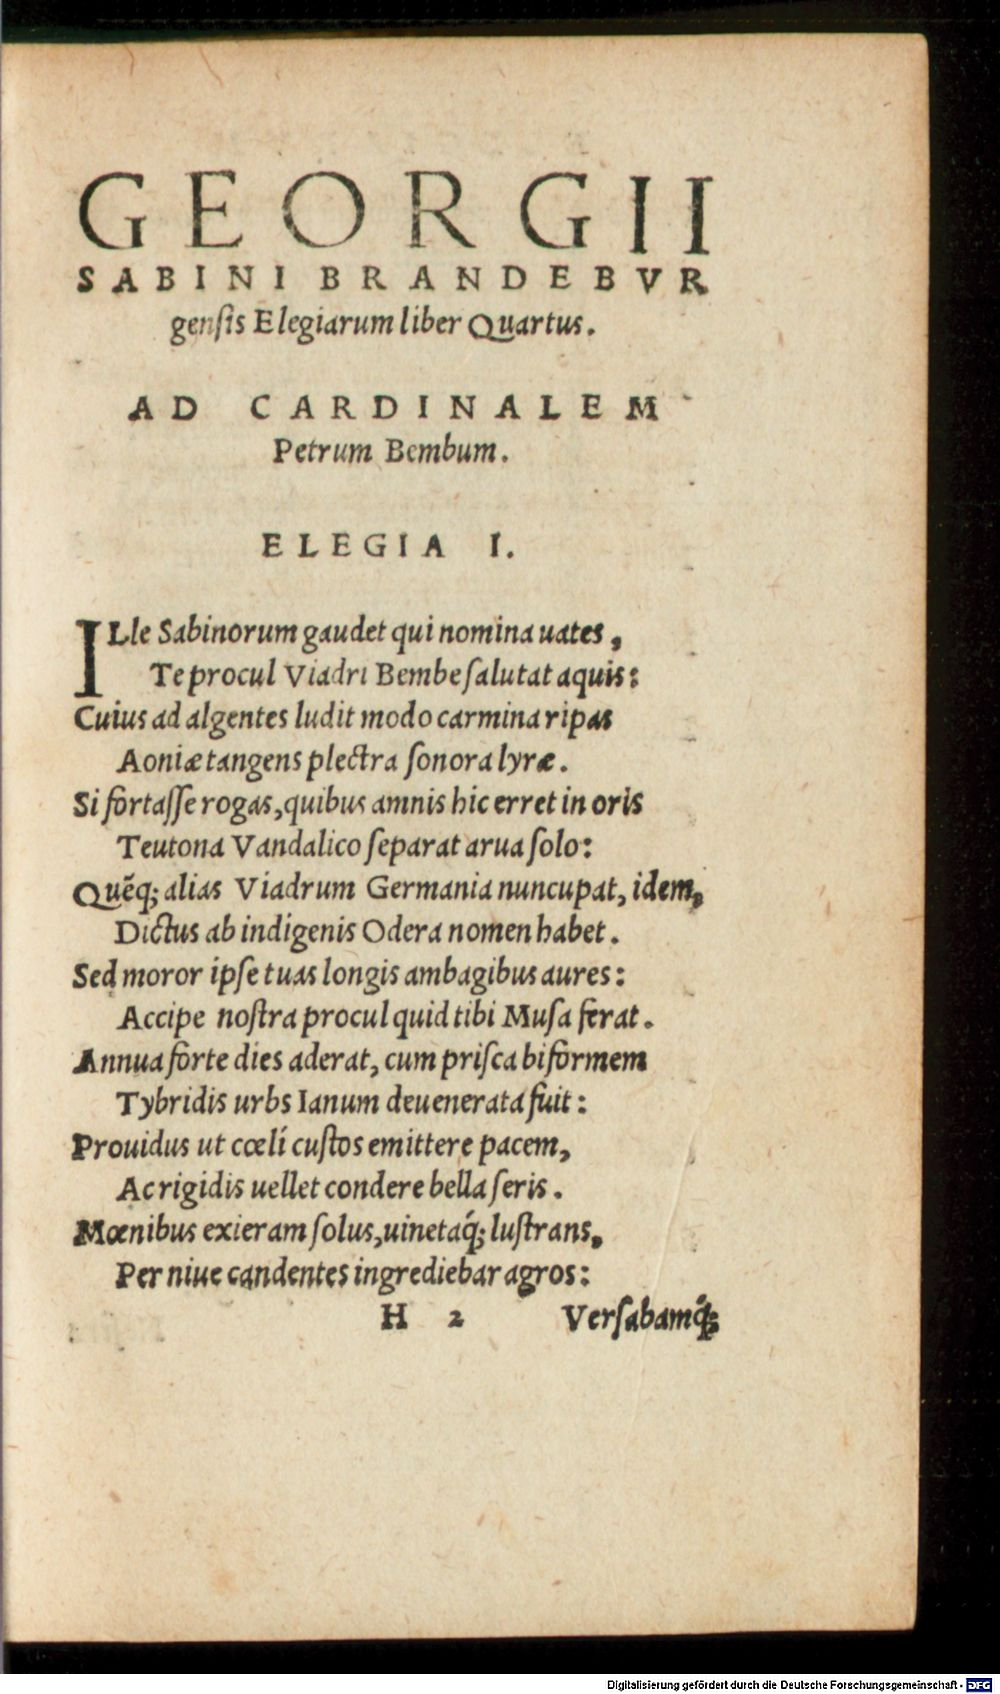 GEORGII
SABINI BRANDEBVR
gensis Elegiarum liber Quartus.
AD CARDINALEM
Petrum Bembum.
ELEGIA I.
ILle Sabinorum gaudet qui nomina uates,
Te procul Viadri Bembe salutat aquis:
Cuius ad algentes ludit modo carmina ripas
Aoniæ tangens plectra sonora lyræ.
Si fortasse rogas, quibus amnis hic erret in oris
Teutona Vandalico separat arua solo:
Quẽq; alias Viadrum Germania nuncupat, idem,
Dictus ab indigenis Odera nomen habet.
Sed moror ipse tuas longis ambagibus aures:
Accipe nostra procul quid tibi Musa ferat.
Annua forte dies aderat, cum prisca biformem
Tybridis urbs Ianum deuenerata fuit:
Prouidus ut cœli custos emittere pacem,
Ac rigidis uellet condere bella seris.
Mœnibus exieram solus, uinetaq́; lustrans,
Per niue candentes ingrediebar agros:
H 2 Versabamq́;
Digitalisierung gefördert durch die Deutsche Forschungsgemeinschaft - DFG